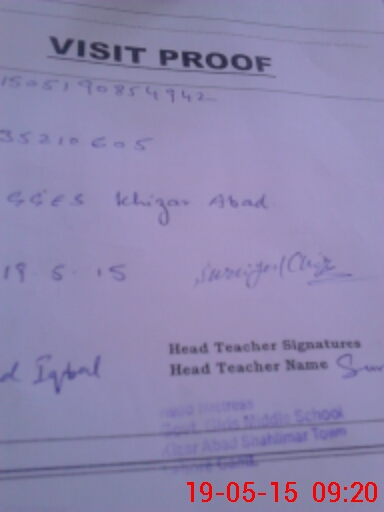 VISIT PROOF
1505190854942
35210605
GGES Khizar Abad
19.5.15
Head Teacher Signatures
d Iqbal
Head Teacher Name
Head Mistress
Govt. Girls Middle School
Khizar Abad Shahlimar Town
Lahore Cantt.
19-05-15 09:20